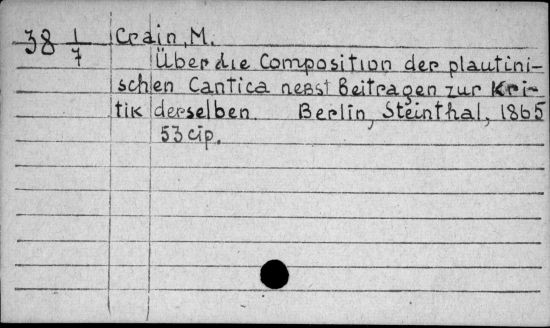 38 1/7 Crain, M.
Über die Composition der plautini-
schen Cantica nebst Beitragen zur Kri-
tik derselben. Berlin, Steinthal, 1865
53 cip.